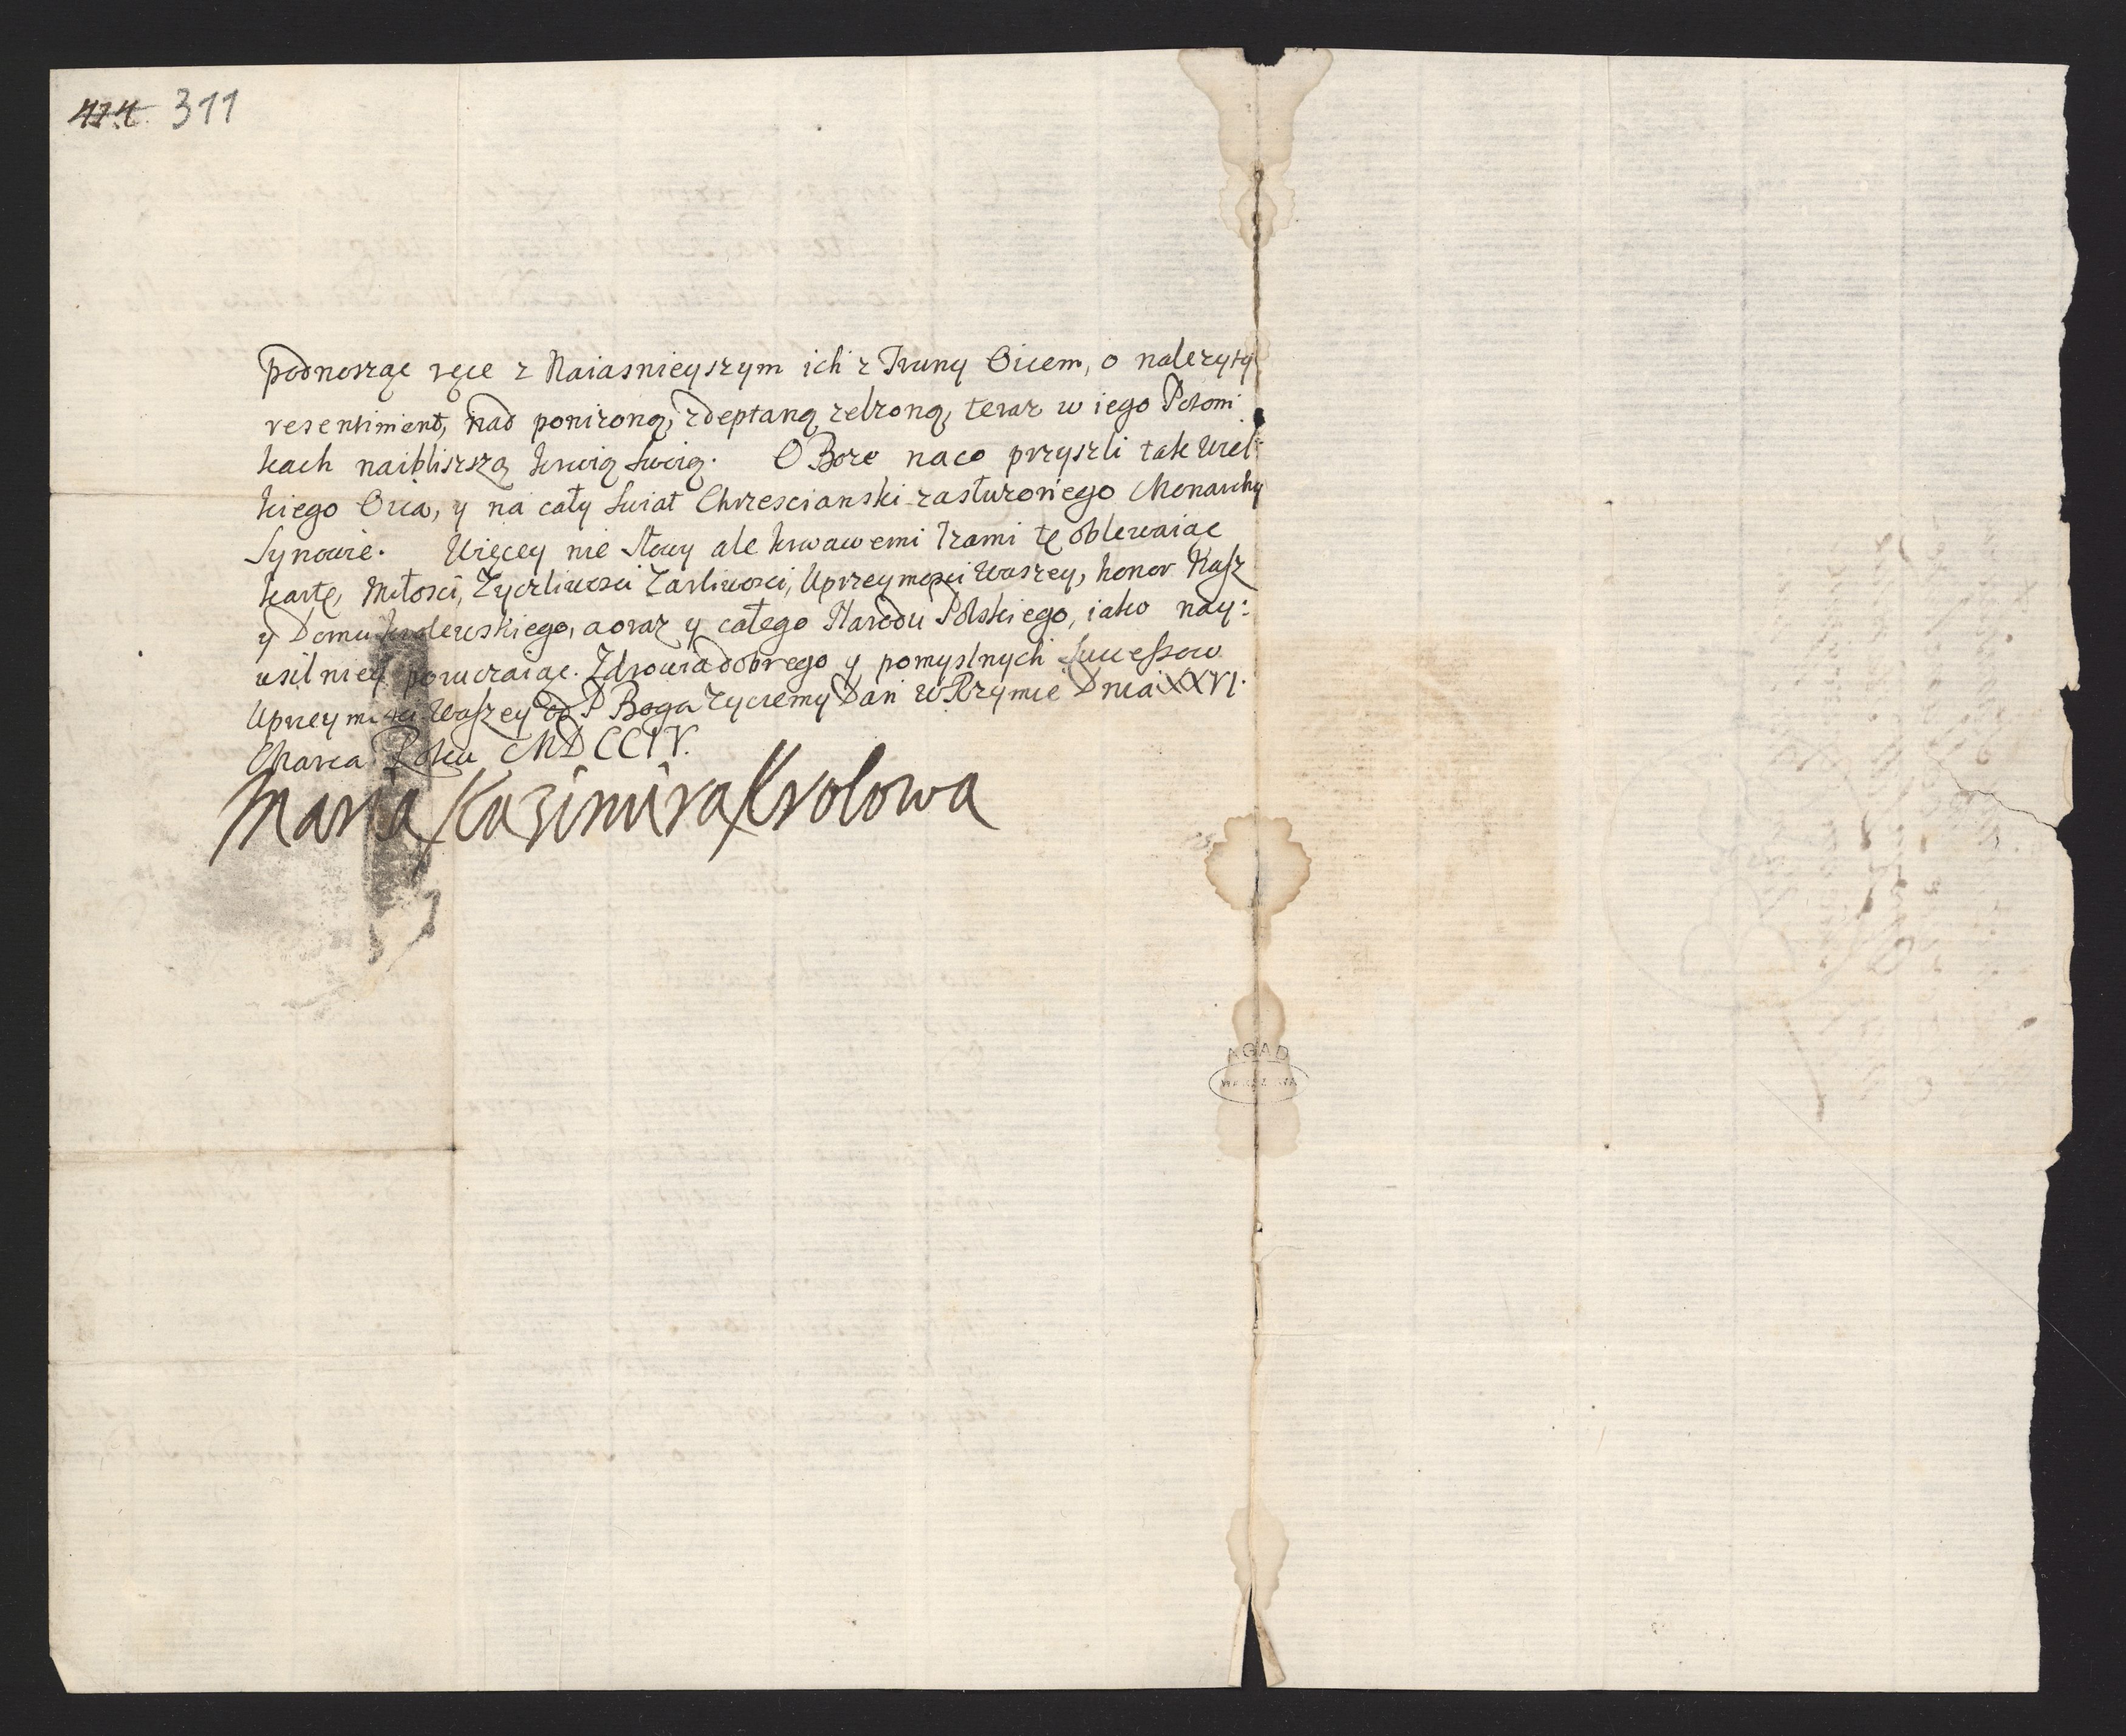 414. 311
podnosząc ręce z Naiasnieyszym ich z Truny Oicem, o nalezyty
resentiment, nad ponizoną, zdeptaną zelzoną, teraz w iego Potom
kach naibliszszą krwią swoią. O Boze naco przyszli tak wiel:
kiego Oica, y na cały swiat Chrzescianski zasłuzonego Monarchy
Synowie. Więcey nie słowy ale krwawemi łzami tę oblewaiąc
kartę, Miłosci, Zyczliwosci Zarliwosci, Uprzeymosci Waszey, honor Nasz
y Domu Krolewskiego, a oraz y całego Narodu Polskiego, iako nay:
usilniey poruczaiąc. Zdrowia dobrego y pomyslnych Successow
Uprzeymosci Waszey od P Boga zyczemy Dan w Rzymie Dnia XXVI.
Marca Roku MDCCIV.
Maria Kazimira Krolowa
AGAD
WARSZAWA